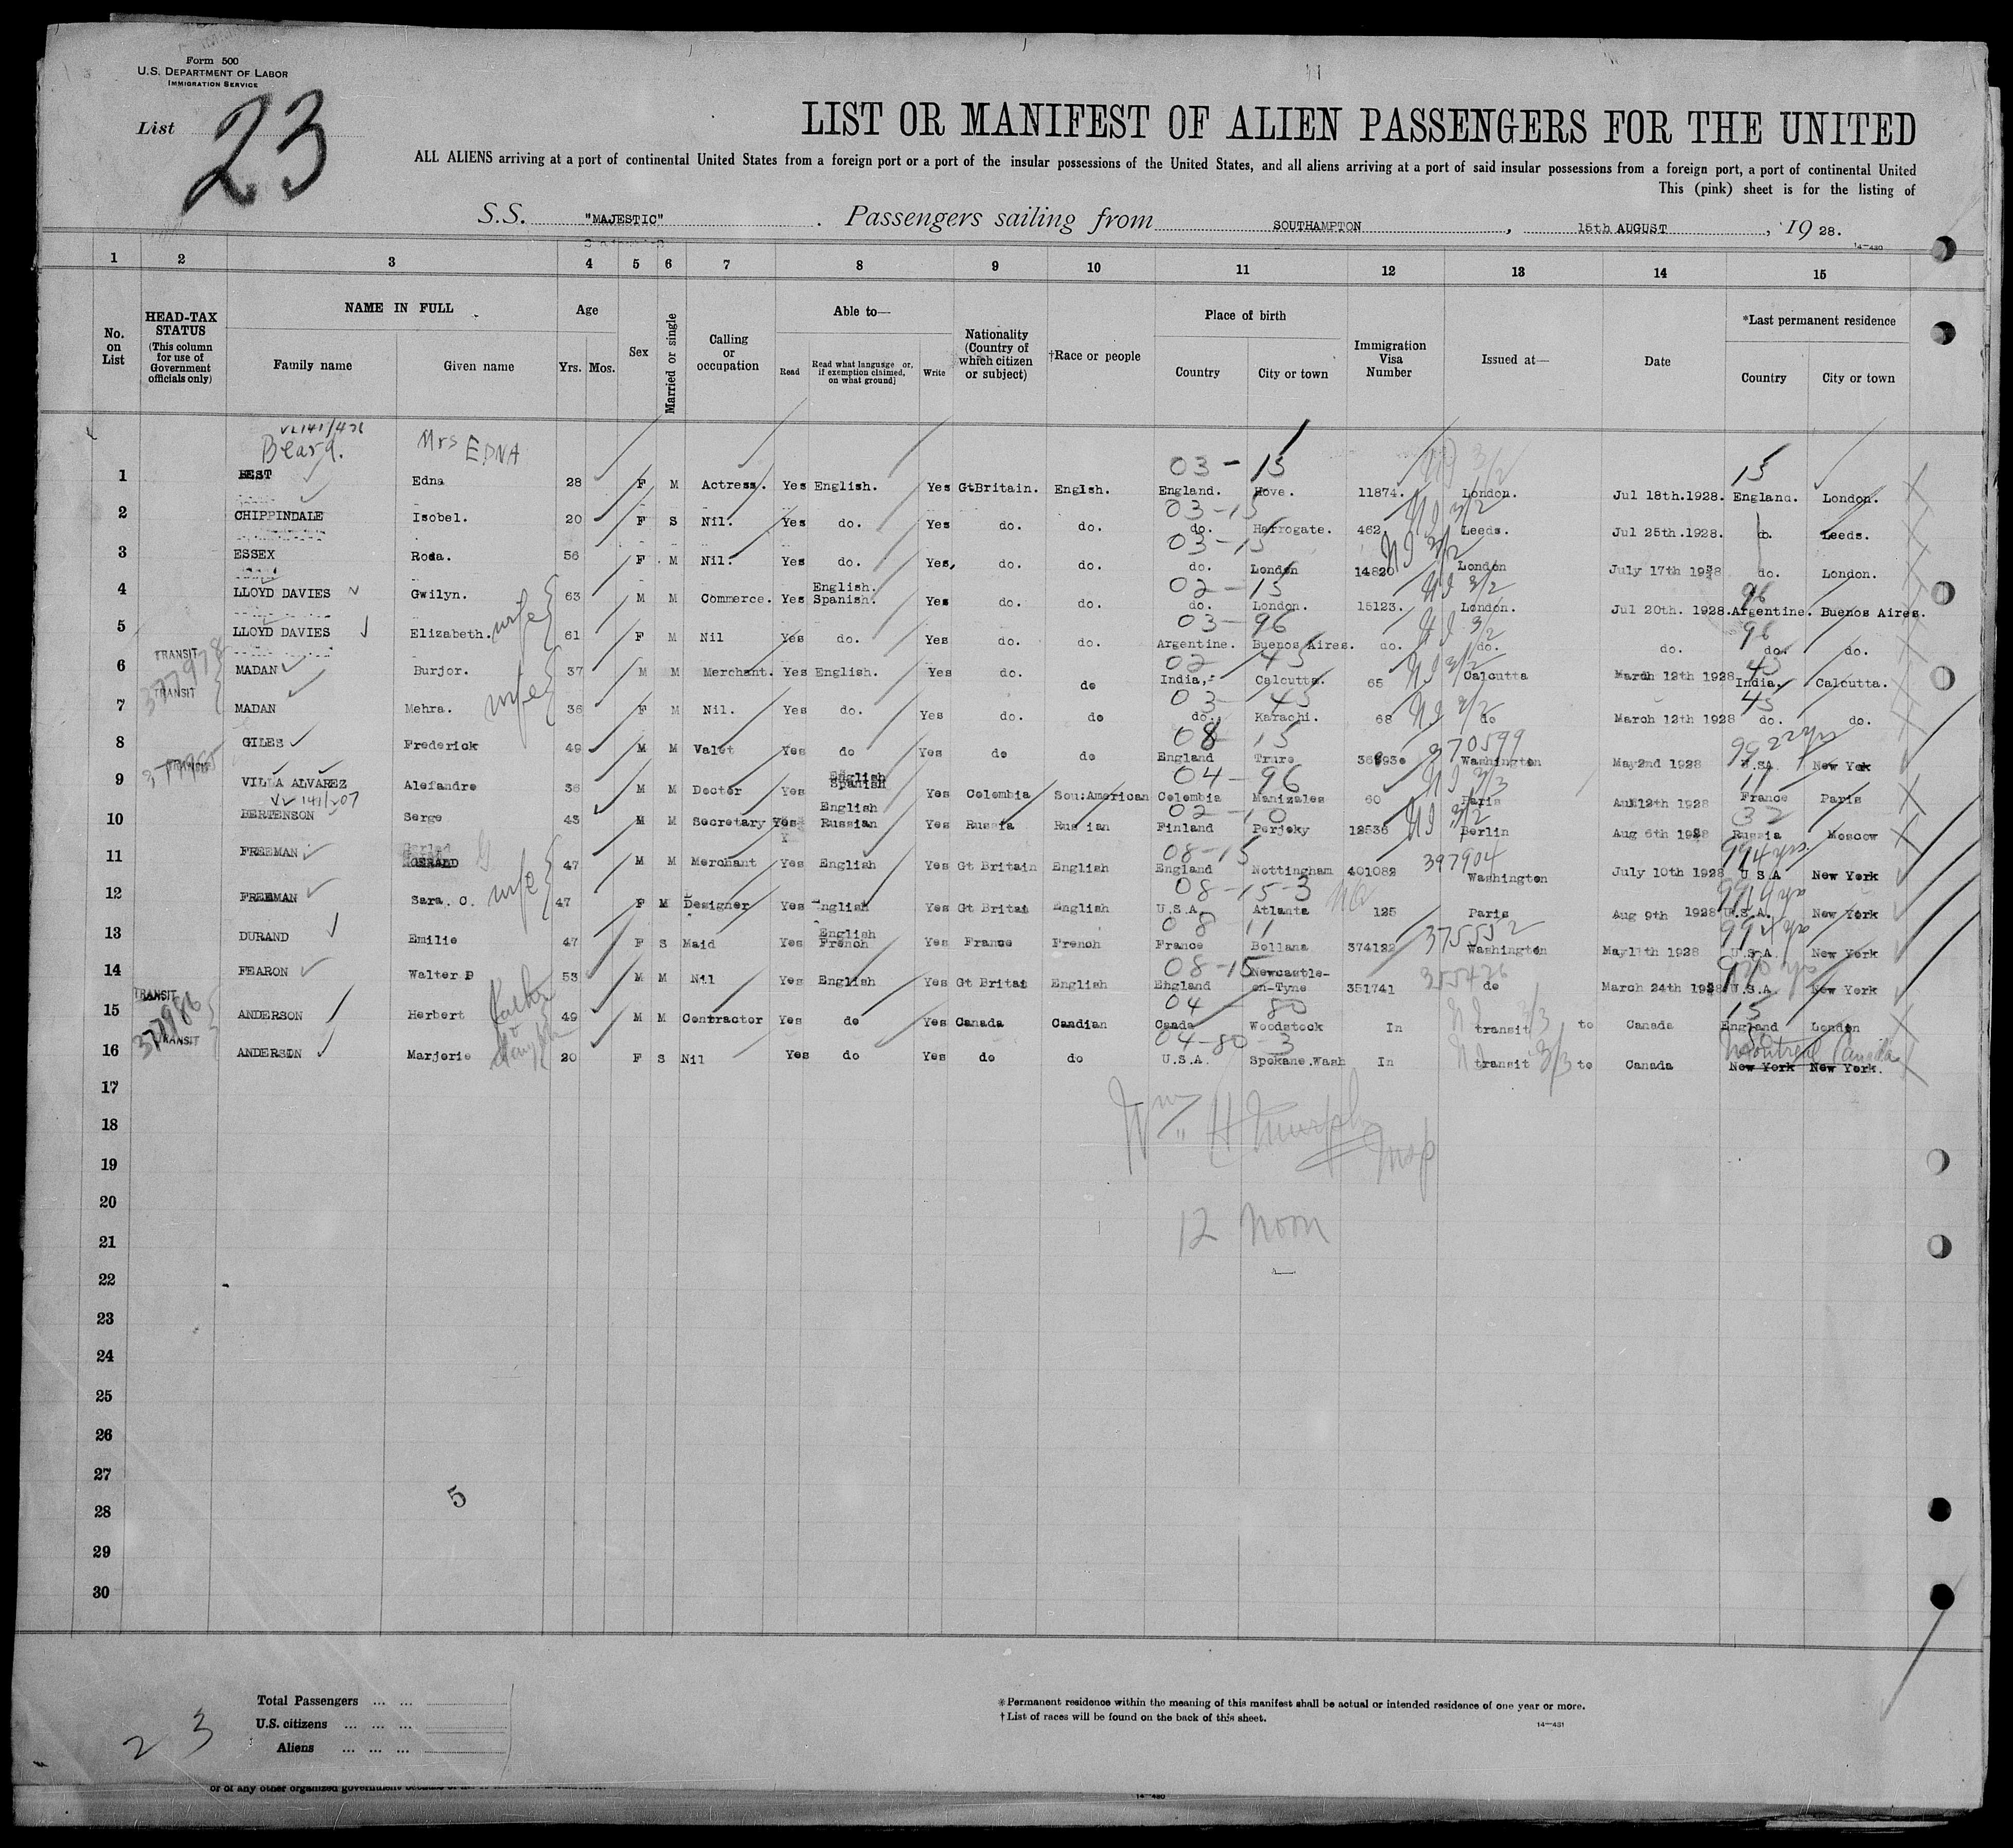 Form 500
U.S. DEPARTMENT OF LABOR
IMMIGRATION SERVICE
List 23
LIST OR MANIFEST OF ALIEN PASSENGERS FOR THE UNITED
ALL ALIENS arriving at a port of continental United States from a foreign port or a port of the insular possessions of the United States, and all aliens arriving at a port of said insular possessions from a foreign port, a port of continental United
This (pink) sheet is for the listing of
S.S. "MAJESTIC" . Passengers sailing from SOUTHAMPTON , 15th AUGUST , 19 28.
14-480
1 2 3 4 5 6 7 8 9 10 11 12 13 14 15
No. on List
HEAD-TAX STATUS
(This column for use of Government officials only)
NAME IN FULL
Family name Given name
Age
Yrs. Mos.
Sex
Married or single
Calling or occupation
Able to—
Read
Read what language or, if exemption claimed, on what ground)
Write
Nationality (Country of which citizen or subject)
†Race or people
Place of birth
Country City or town
Immigration Visa Number
Issued at—
Date
*Last permanent residence
Country City or town
Beard. Mrs EDNA
03 - 15 15
1 BEST Edna 28 F M Actress. Yes English. Yes GtBritain. Englsh. England. Hove. 11874. London. Jul 18th.1928. England. London.
03-15
2 CHIPPINDALE Isobel. 20 F S Nil. Yes do. Yes do. do. do. Harrogate. 462 Leeds. Jul 25th.1928. do. Leeds.
03-15
3 ESSEX Roda. 56 F M Nil. Yes do. Yes, do. do. do. London 14820 London July 17th 1928 do. London.
02-15 96
4 LLOYD DAVIES Gwilyn. 63 M M Commerce. Yes English. Spanish. Yes do. do. do. London. 15123. London. Jul 20th. 1928. Argentine. Buenos Aires.
03-96 96
5 LLOYD DAVIES Elizabeth. wife 61 F M Nil Yes do. Yes do. do. Argentine. Buenos Aires. do. do. do. do. do.
TRANSIT 377978
02 45 45
6 MADAN Burjor. 37 M M Merchant. Yes English. Yes do. do India, Calcutta. 65 Calcutta March 12th 1928 India. Calcutta.
TRANSIT
03- 45 45
7 MADAN Mehra. wife 36 F M Nil. Yes do. Yes do. do do. Karachi. 68 do March 12th 1928 do. do.
08 15 370599
8 GILES Frederick 49 M M Valet Yes do Yes do do England Truro Washington May2nd 1928 U.SA New Yok
04-96 11
9 VILLA ALVAREZ Alefandre 36 M M Doctor Yes English Spanish Yes Colombia Sou:American Colombia Manizales 60 Paris 12th 1928 France Paris
02-10 32
10 BERTENSON Serge 43 M M Secretary Yes English Russian Yes Russia Rus ian Finland Perjoky 12536 Berlin Aug 6th 1928 Russia Moscow
08-15 397904
11 FREEMAN GERALD 47 M M Merchant Yes English Yes Gt Britain English England Nottingham 401082 Washington July 10th 1928 U S A New York
08-15-3
12 FREEMAN Sara. C. wife 47 F M Designer Yes English Yes Gt Britai English U.S.A. Atlanta 125 Paris Aug 9th 1928 U.S.A. New York
08 11 375552
13 DURAND Emilie 47 F S Maid Yes English French Yes France French France Bollana 374122 Washington May11th 1928 U.S.A New York
08-15 355426
14 FEARON Walter D 53 M M Nil Yes English Yes Gt Britai English England Newcastle-on-Tyne 351741 do March 24th 1928 U.S.A. New York
TRANSIT 377986
04 - 80 15
15 ANDERSON Herbert 49 M M Contractor Yes do Yes Canada Candian Canda Woodstock In transit to Canada England London
TRANSIT
04-80-3 Montreal Canada
16 ANDERSON Marjorie 20 F S Nil Yes do Yes do do U.S.A. Spokane.Wash In transit to Canada New York New York.
17
Wm H Murphy Insp
18
19
20
12 noon
21
22
23
24
25
26
27
5
28
29
30
Total Passengers ... ...
U.S. citizens ... ... ...
Aliens ... ... ...
23
*Permanent residence within the meaning of this manifest shall be actual or intended residence of one year or more.
†List of races will be found on the back of this sheet.
14-431
14-480